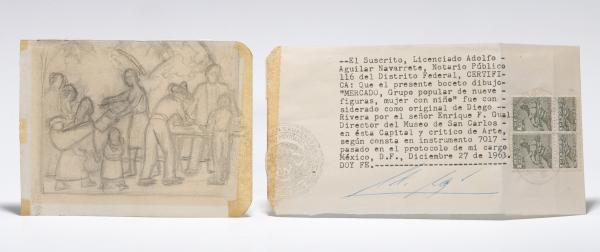 --El Suscrito, Licenciado Adolfo -
Aguilar Navarrete, Notario Público
116 del Distrito Federal, CERTIFI-
CA: Que el presente boceto dibujo-
"MERCADO, Grupo popular de nueve -
figuras, mujer con niño" fue con-
siderado como original de Diego --
Rivera por el señor Enrique F. Gual
Director del Museo de San Carlos -
en ésta Capital y critico de Arte,
según consta en instrumento 7017 -
pasado en el protocolo de mi cargo
México, D.F., Diciembre 27 de 1963.
DOY FE.------------------------